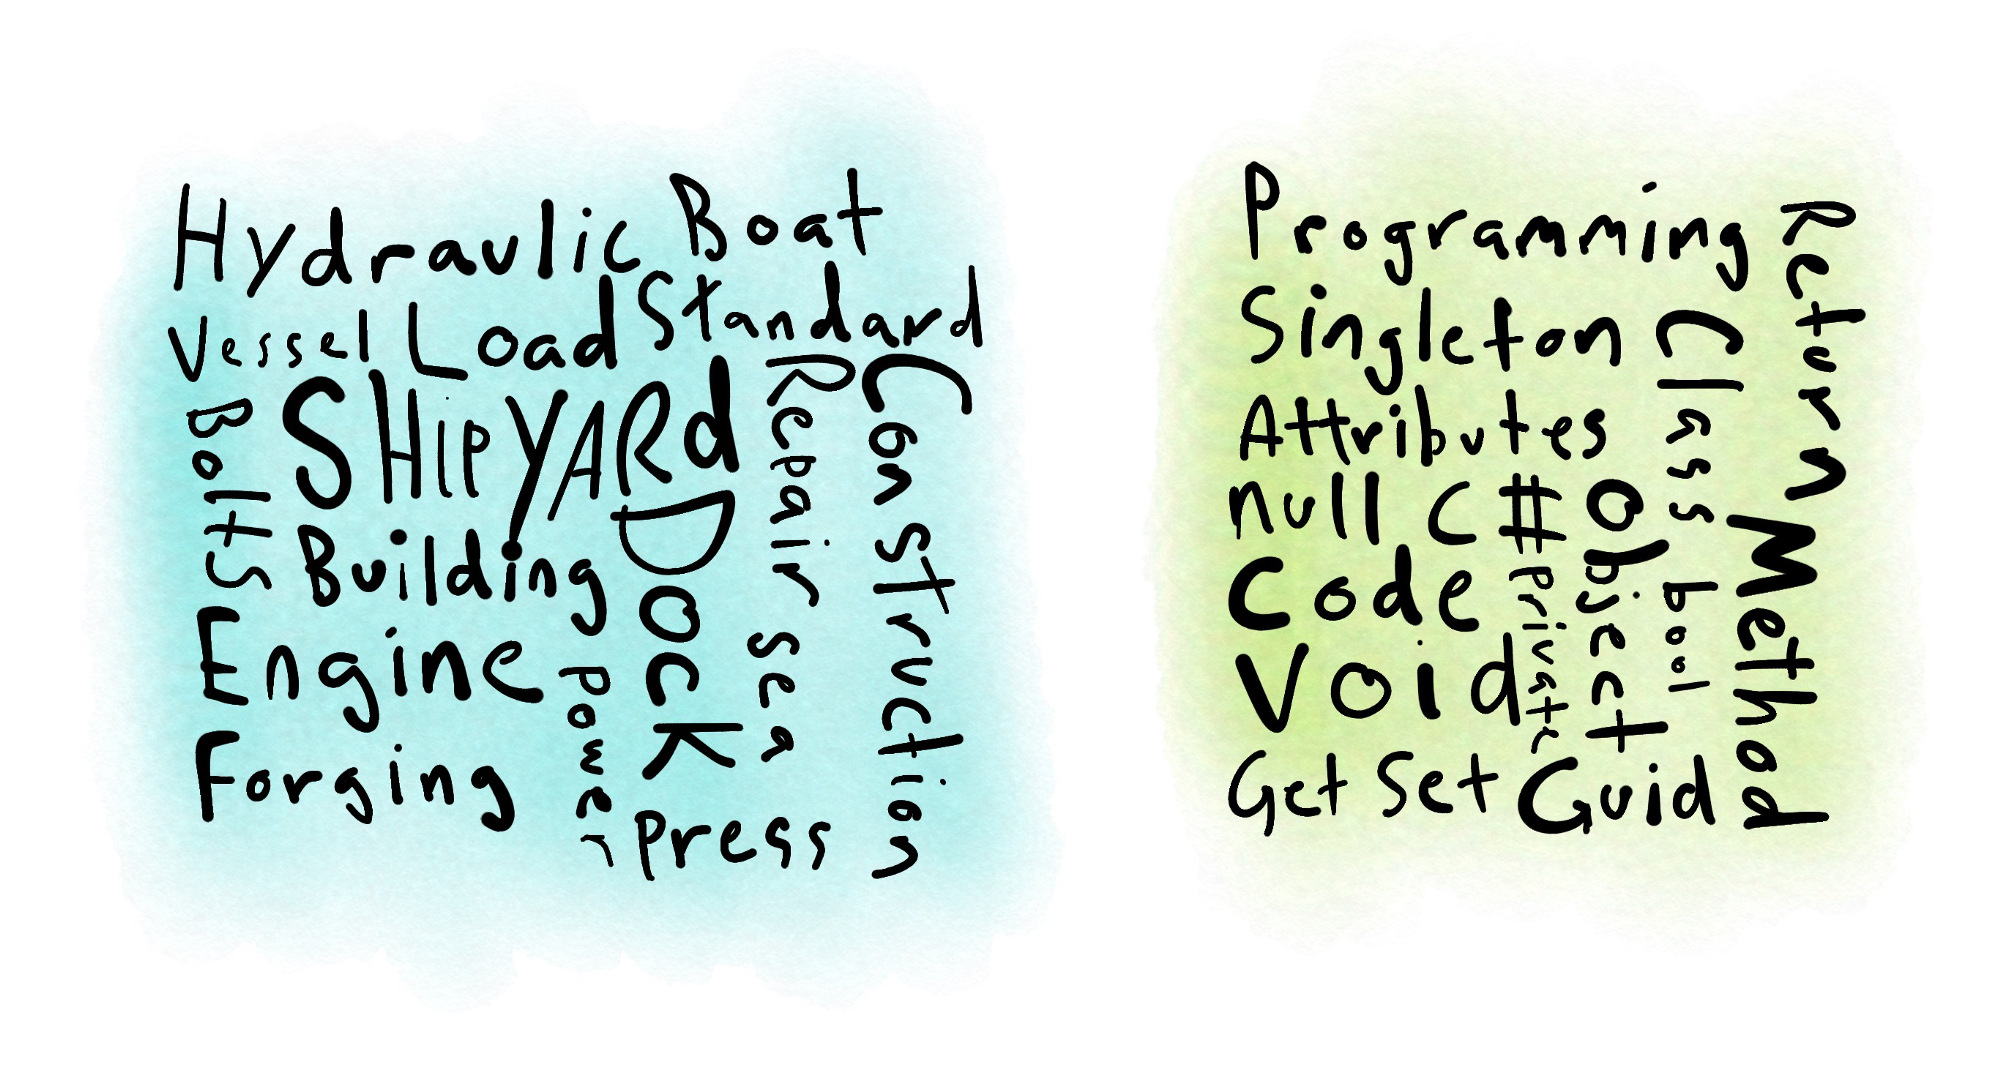 Hydraulic Boat
Vessel Load Standard
Bolts
SHIPYARd
Repair
Construction
Building
DOCK
Engine
Power
sea
Forging
Press
Programming
Return
Singleton
Class
Attributes
null C# Object
Method
Code
private
bool
Void
Get Set Guid